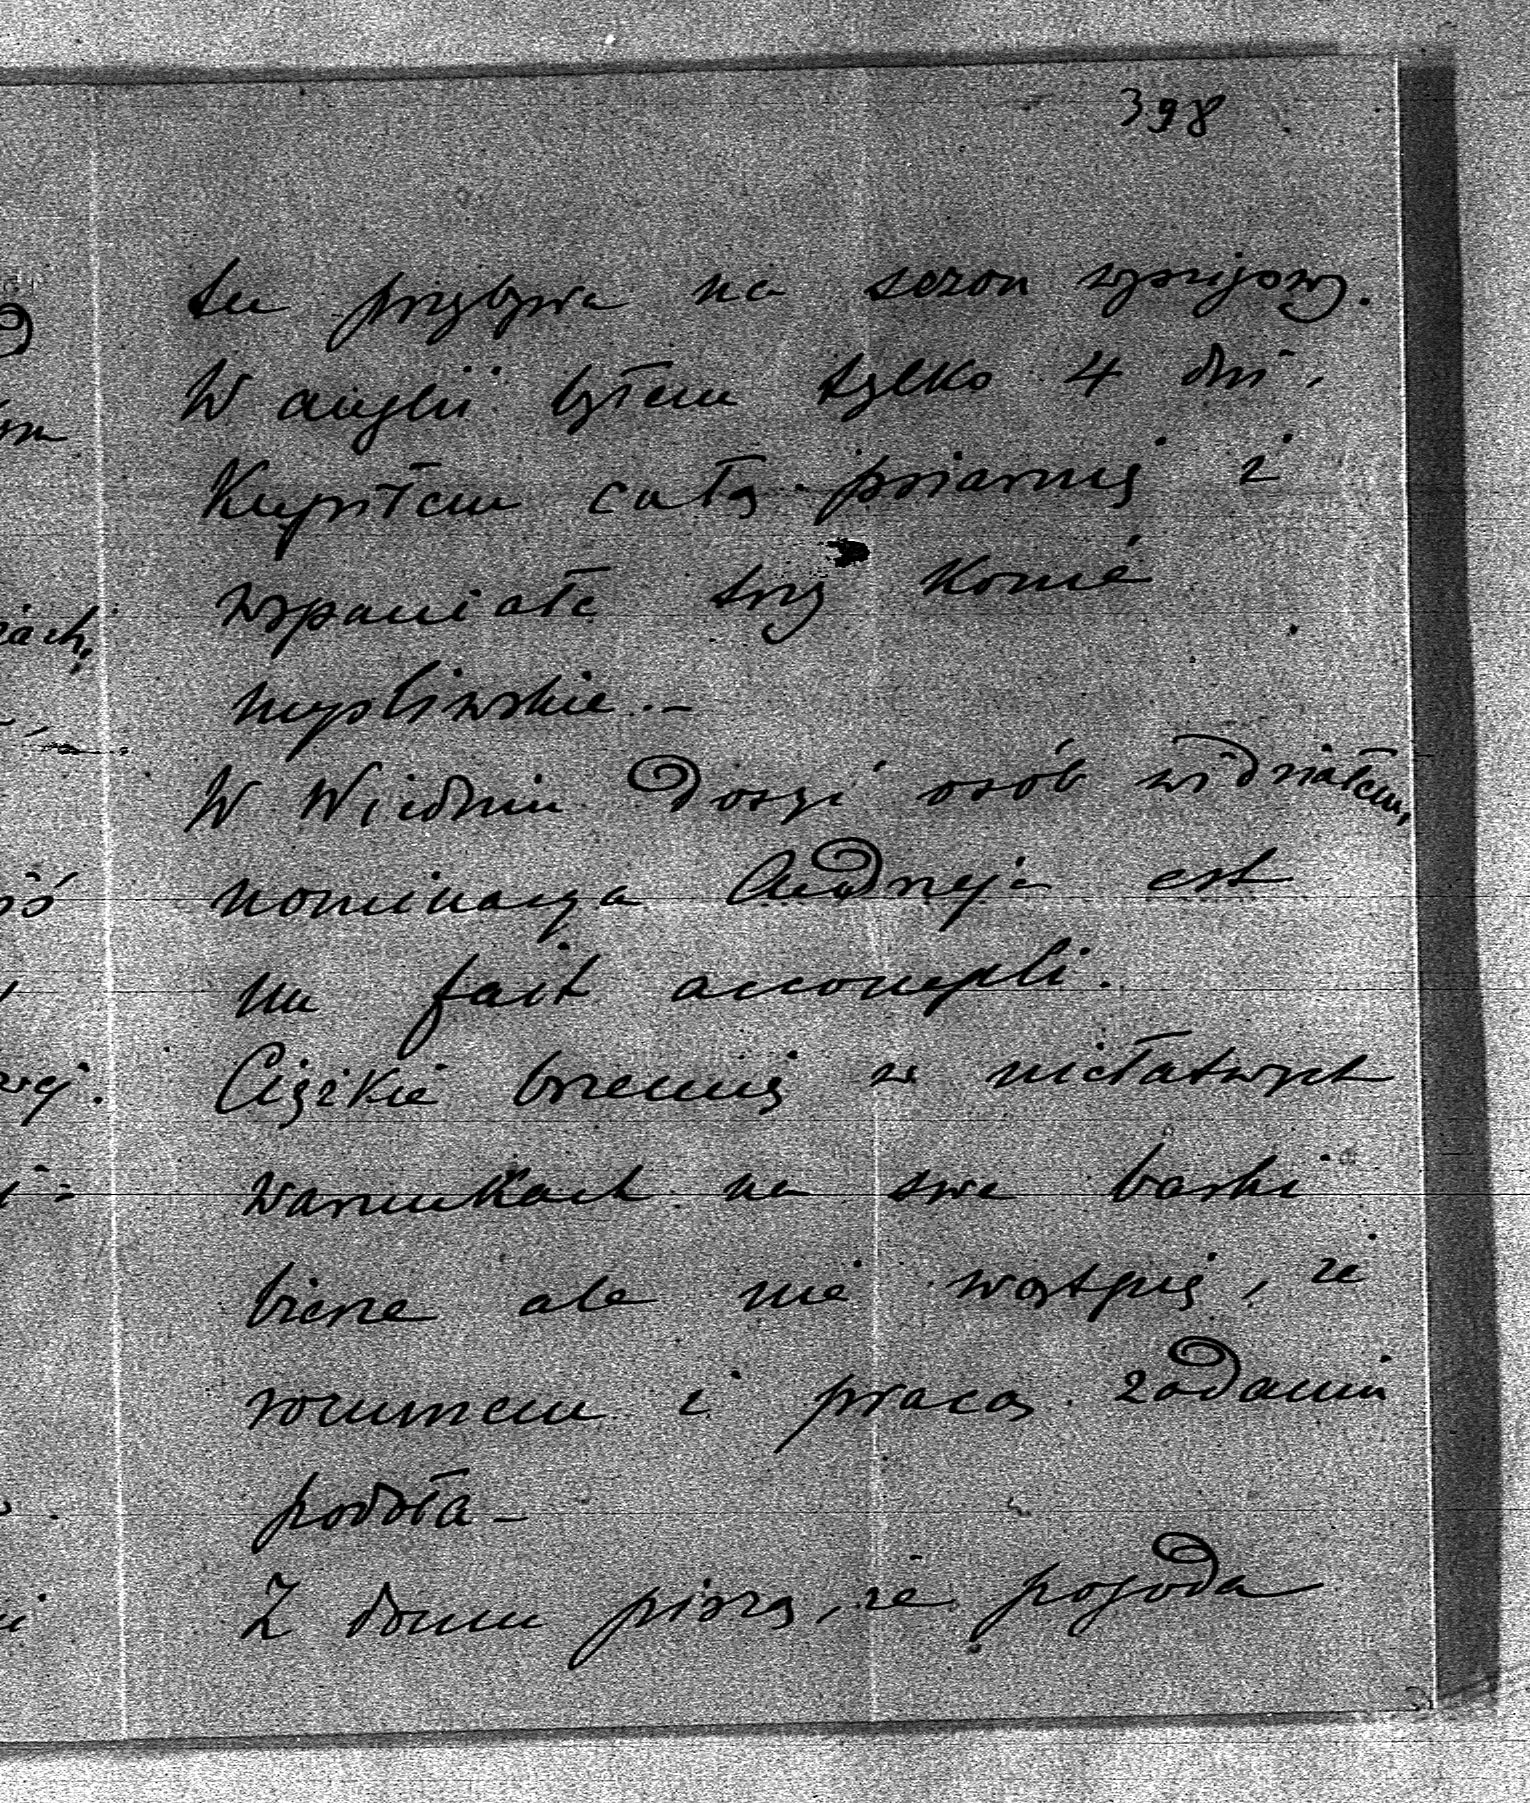 398
tu przybywa na sezon wyścigowy.
W Anglii byłem tylko 4 dni,
Kupiłem całą psiarnię i
wspaniałe trzy konie
myśliwskie. –
W Wiedniu dosyć osób widziałem,
nominacya Andrzeja est
un fait accompli.
Ciężkie brzemię w niełatwych
warunkach na swe barki
bierze ale nie wątpię, że
rozumem i pracą zadaniu
podoła –
Z domu piszą, że pogoda